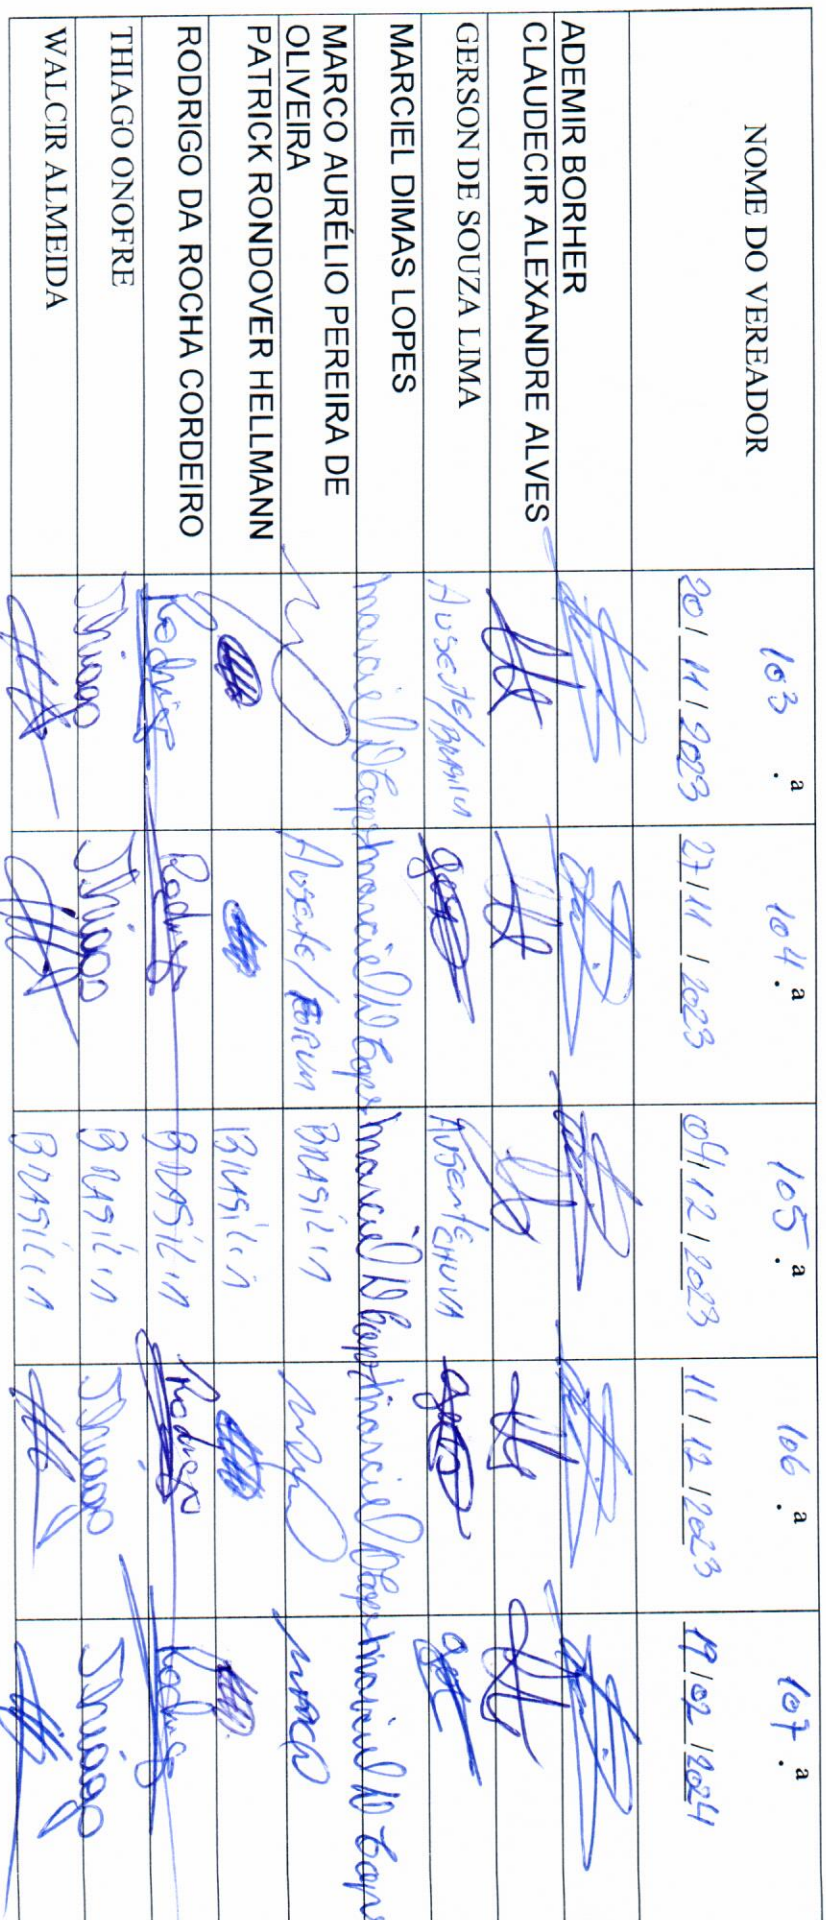 NOME DO VEREADOR 103.ª 104.ª 105.ª 106.ª 107.ª
20/11/2023 27/11/2023 04/12/2023 11/12/2023 19/02/2024
ADEMIR BORHER
CLAUDECIR ALEXANDRE ALVES
GERSON DE SOUZA LIMA Ausente/BRASÍLIA Ausente CHUVA
MARCIEL DIMAS LOPES Marciel D Lopes Marciel D Lopes Marciel D Lopes Marciel D Lopes Marciel D Lopes
MARCO AURÉLIO PEREIRA DE Ausente/FORUM BRASÍLIA MARCO
OLIVEIRA
PATRICK RONDOVER HELLMANN BRASÍLIA
RODRIGO DA ROCHA CORDEIRO Rodrigo Rodrigo BRASÍLIA Rodrigo Rodrigo
THIAGO ONOFRE Thiago Thiago BRASÍLIA Thiago Thiago
WALCIR ALMEIDA BRASÍLIA